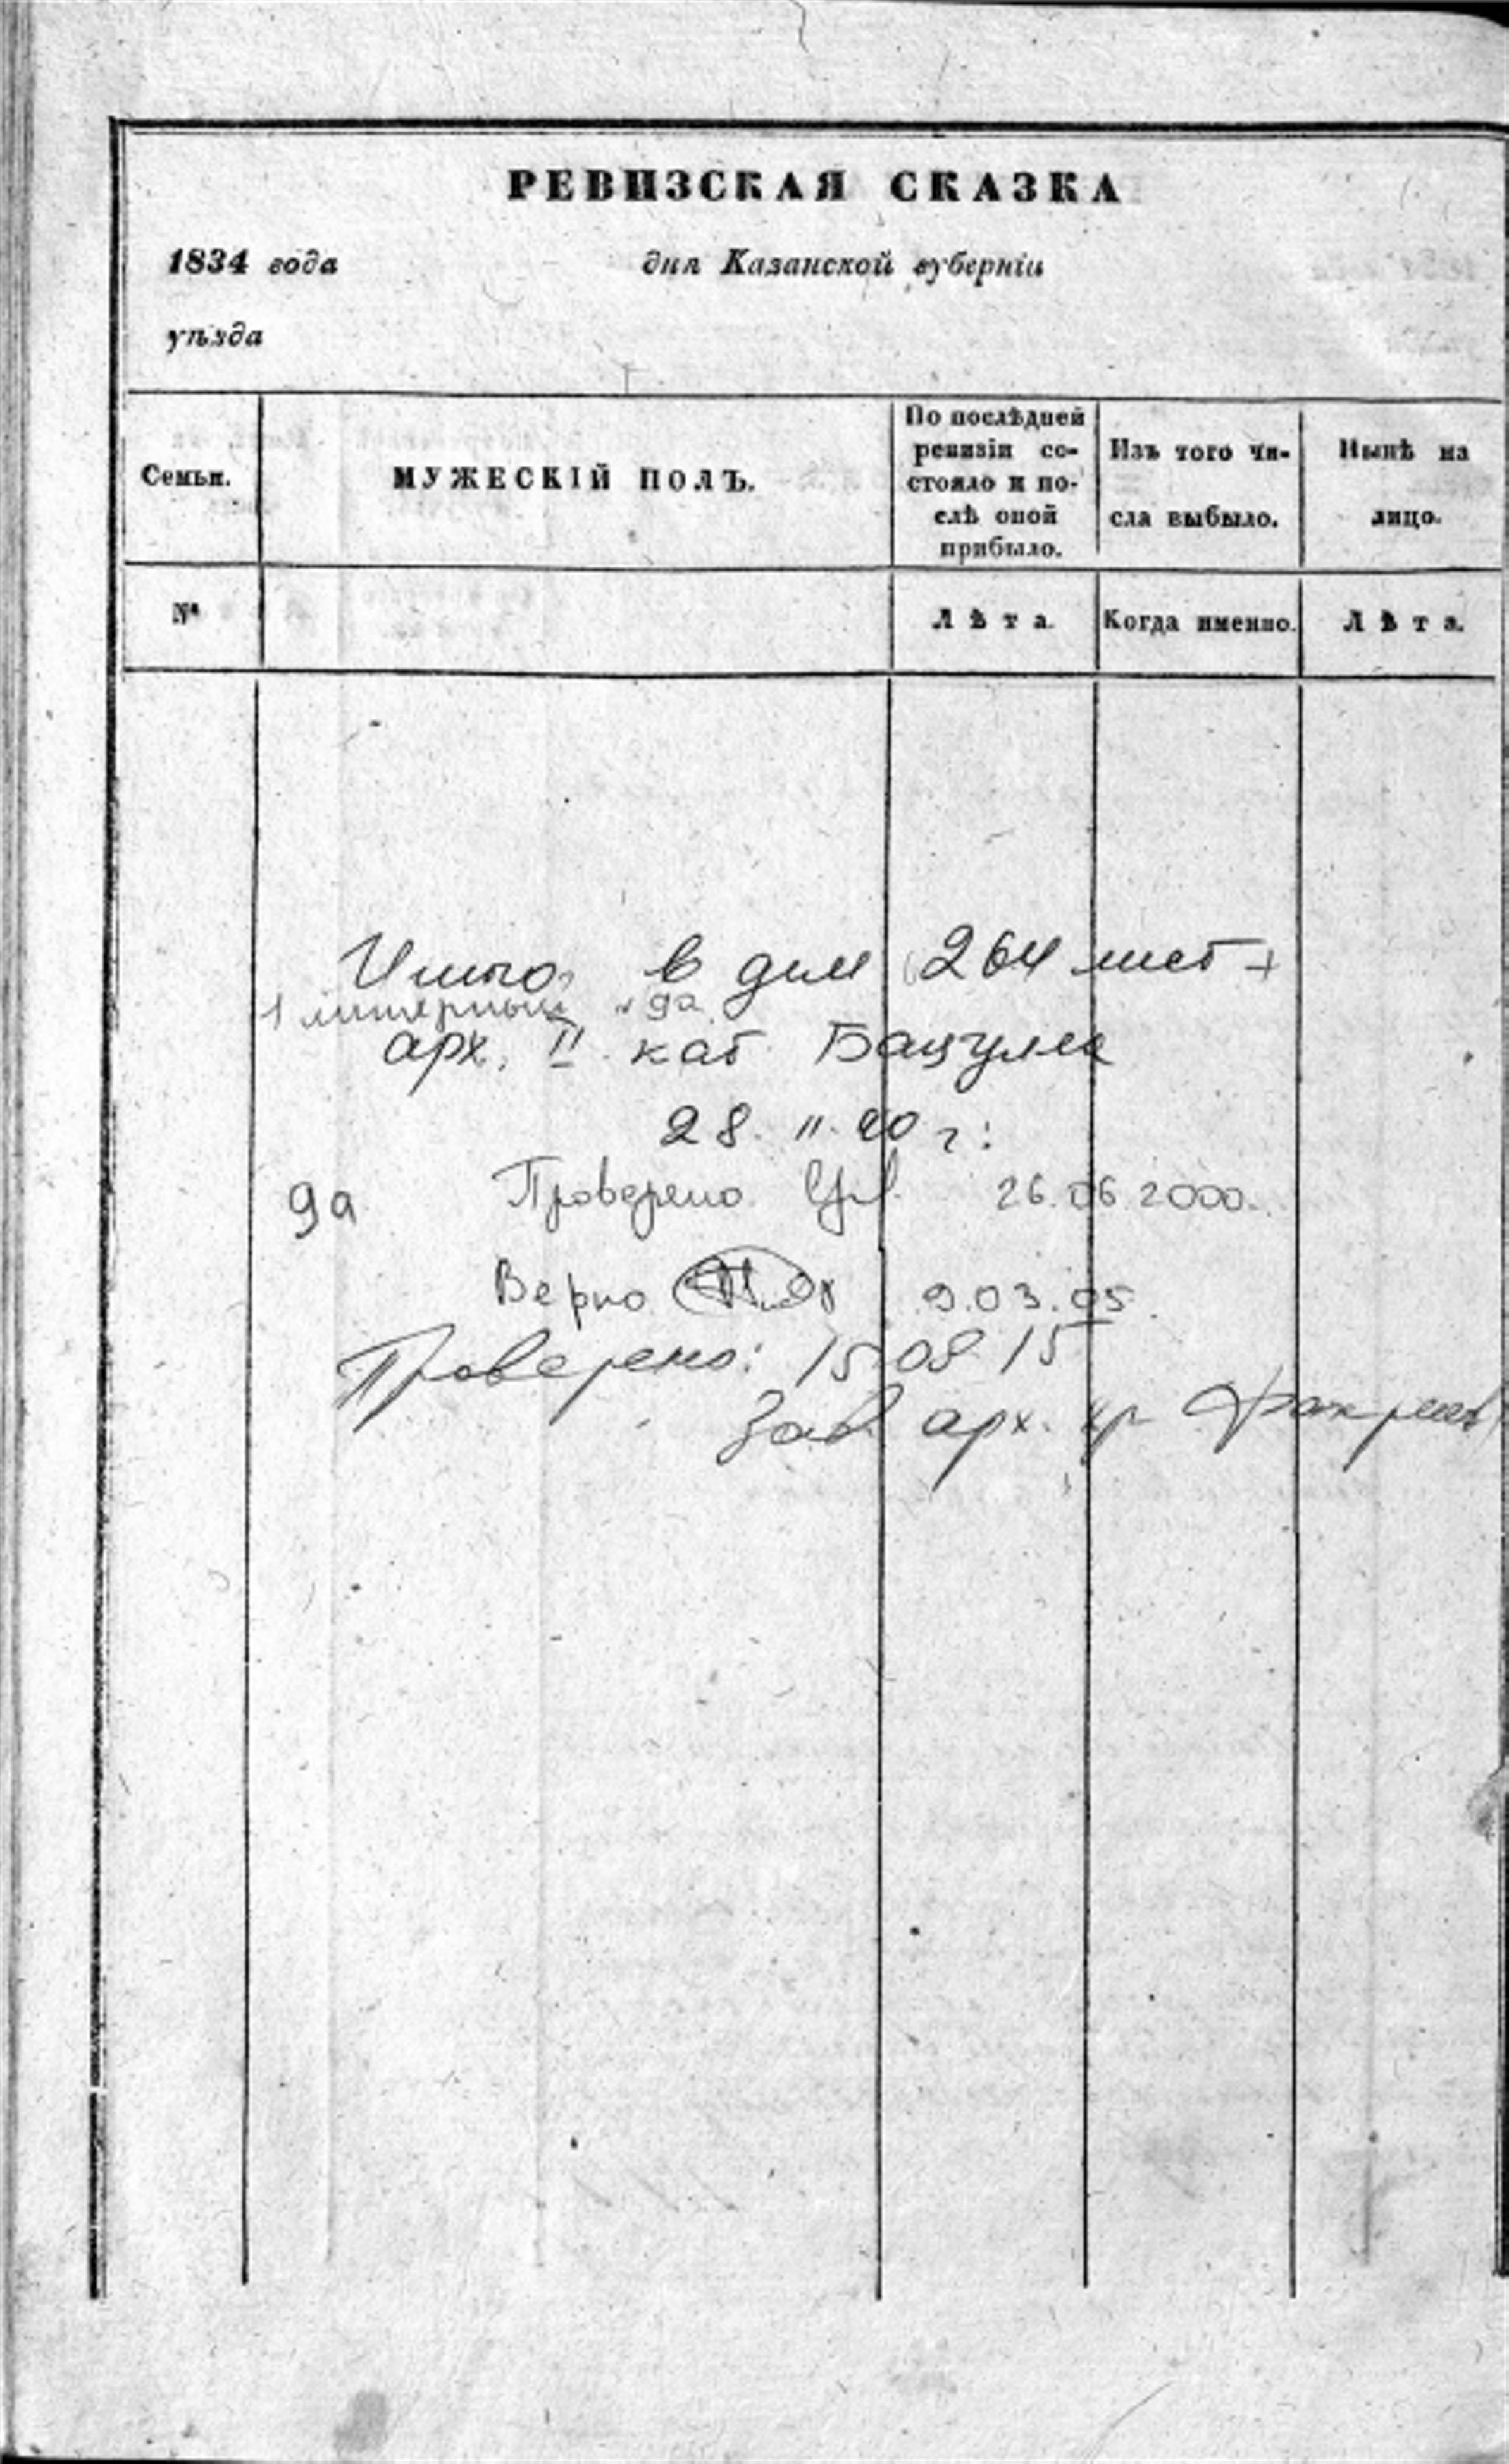 РЕВИЗСКАЯ СКАЗКА
1834 года дня Казанской губерніи
уѣзда
Семьи.
МУЖЕСКІЙ ПОЛЪ.
По послѣдней
ревизіи со-
стояло и по-
слѣ оной
прибыло.
Изъ того чи-
сла выбыло.
Нынѣ на
лицо.
№
Лѣта.
Когда именно.
Лѣта.
Итого в деле 264 лист +
1 литерный 9а
арх. II кат
28. II. г.
9а Проверено 26.06.2000.
Верно 9.03.05.
Проверено: 15.08.15
Зав. арх. хр